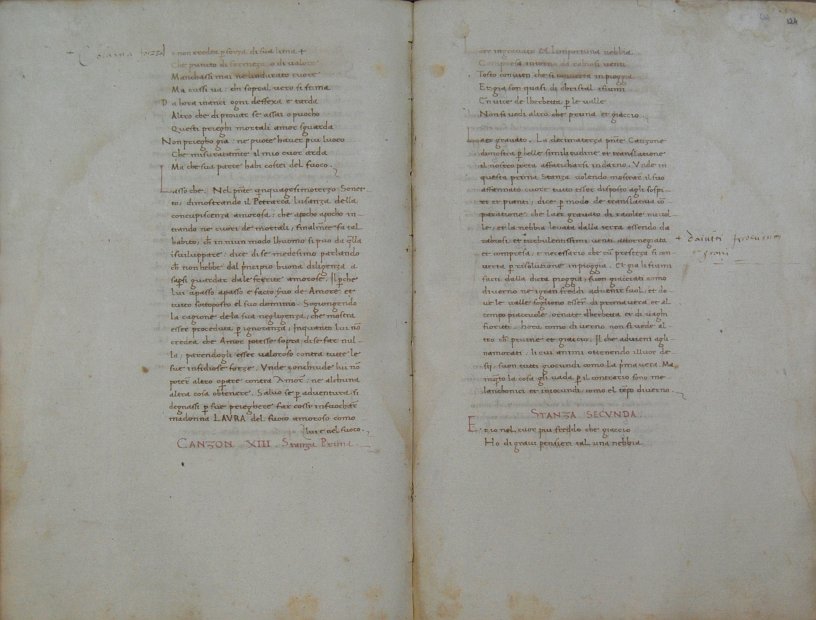 non credea p forza di sua lima +
Che punto di fermeza o di valore
Mancassi mai ne indurato cuore
Ma cossi va: chi sopral vero si stima
Da hora inanci ogni deffexa e tarda
Altro che di provare se assai o puocho
Questi prieghi mortali amor sguarda
Non priegho gia ne puote haver piu luoco
Che misuratamte il mio cuor arda
Ma che sua parte habi costei del fuoco.
Lasso che. Nel pnte qnquagesimoterzo Sonet
to, dimostrando il Petrarca lusanza della
concupicenza amorosa: che apocho apocho in
trando ne cuori de mortali, finalmte fa tal
habito; ch in niun modo lhuomo si puo da qlla
isviluppare: dice di se medesimo parlando
ch non hebbe dal principio buona diligenza a
sapsi guardar dale ferute amorose. Il pche
lui apasso apasso e facto suo de Amore: et
tutto sottoposto al suo dominio. Sogiongendo
la cagione de la sua negligenza, che mostra
esser proceduta p ignoranza; Inquanto lui no
credea che Amor potesse sopra di se far nul
la; parendogli esser valoroso contra tutte le
sue insidiose forze. Unde conchiude lui no
poter altro opare contra Amor, ne alchuna
altra cosa obtenere. Salvo se p adventura si
degnassi p sue prieghere far cossi infuochar
madonna LAURA del fuoco amoroso como
lui e nel fuoco.
CANZON XIII. Stanza Prima
124
aer ingravato et limportuna nebbia
Compressa intorno da rabiosi venti
Tosto convien che si converta in pioggia
Et gia son quasi di christal i fiumi
En vice de lherbetta p le valle
Non si vedi altro che pruina et giaccio.
Laer gravato. La decimaterza pnte Canzone
dimostra p belle similitudine et translatione
al nostro poeta affaticharsi indarno. Unde in
questa prima Stanza volendo mostrar il suo
affannato cuore tutto esser disposto agli sospi
ri et pianti; dice p modo de translativa co
paratione che laer gravato di racolte nuvo
le: et la nebbia levata dalla terra essendo da
rabiosi et turbulentissimi venti attorneghiata
et compressa; e necessario che cu presteza si con
verta p resolutione in pioggia. Et gia li fiumi
facti dalla dicta pioggia; sian giacciati como
diverno ne i gran freddi advenir suol; et do
ve le valle sogliono esser di primavera et al
tempo piacevole ornate dherbetta et di vaghi
fioriti. hora como di verno non si vede al
tro ch pruine et giaccio. Il che advieni agli
namorati. li cui animi ottenendo illuor de
sij. suon tutti giocundi como la pma vera. Ma
inqto la cosa gli vada p il contrario sono me
lanchonici et injocundi como el tepo diverno.
STANZA SECUNDA
Et io nel cuor piu freddo che giaccio
Ho di gravi pensieri tal una nebbia